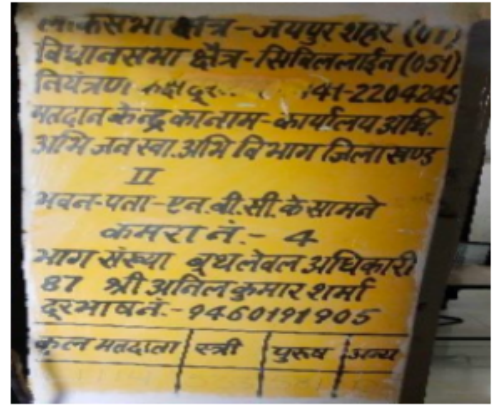 लोकसभा क्षेत्र-जयपुर शहर (07)
विधानसभा क्षैत्र-सिविललाईन (051)
नियंत्रण कक्ष दूर. 141-2204245
मतदान केन्द्र का नाम-कार्यालय अधि.
अभि जन स्वा. अभि विभाग जिला खण्ड
II
भवन-पता-एन.बी.सी. के सामने
कमरा नं.- 4
भाग संख्या बूथ लेवल अधिकारी
87 श्री अनिल कुमार शर्मा
दूरभाष नं.-9460191905
कुल मतदाता स्त्री पुरुष अन्य